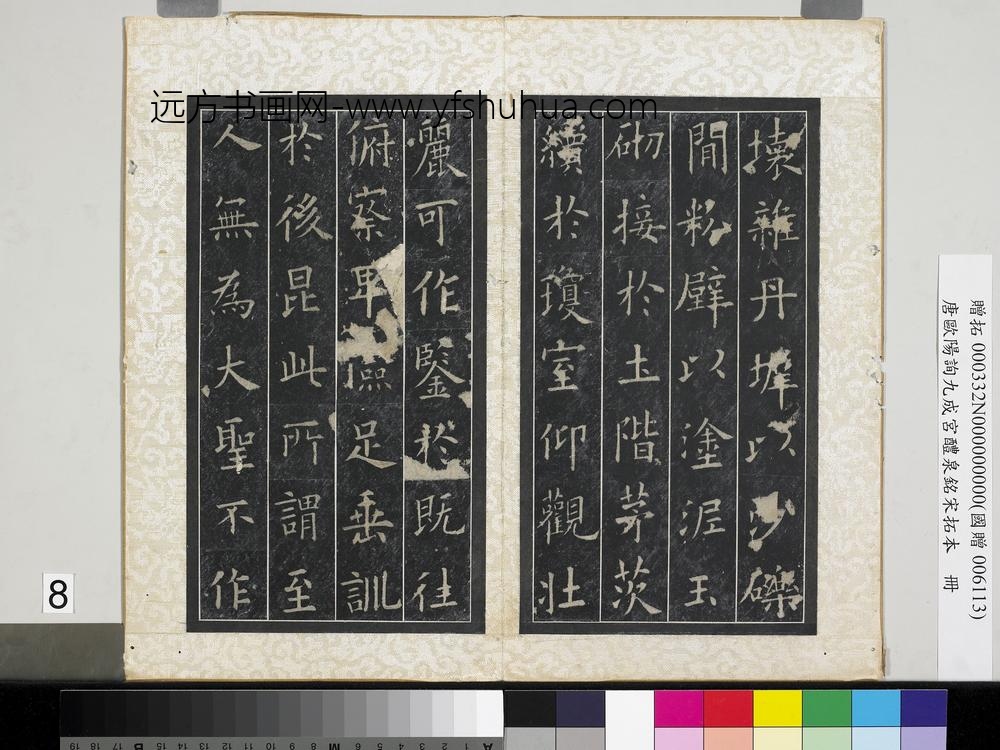 远方书画网-www.yfshuhua.com
壞雜丹墀以沙礫
閒粉壁以塗泥玉
砌接於土階茅茨
續於瓊室仰觀壯
麗可作鑒於既往
俯察卑儉足垂訓
於後昆此所謂至
人無為大聖不作
贈拓 000332N000000000(國贈 006113)
唐歐陽詢九成宮醴泉銘宋拓本 冊
8
19 18 17 B 16 15 14 13 12 11 10 M 9 8 7 6 5 4 3 2 1 A